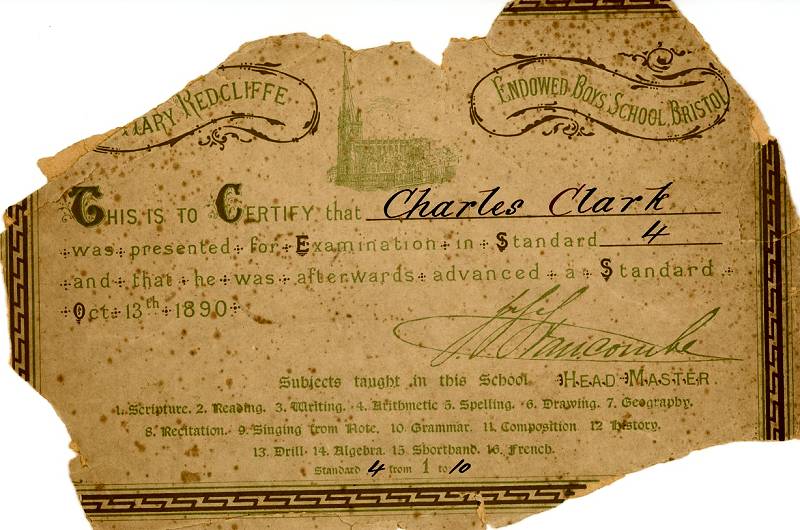 MARY REDCLIFFE
ENDOWED BOYS SCHOOL, BRISTOL
THIS IS TO CERTIFY that Charles Clark
was presented for Examination in Standard 4
and that he was afterwards advanced a Standard
Oct. 13th 1890
Subjects taught in this School HEAD MASTER.
1. Scripture. 2. Reading. 3. Writing. 4. Arithmetic 5. Spelling. 6. Drawing. 7. Geography.
8. Recitation. 9. Singing from Note. 10. Grammar. 11. Composition 12 History.
13. Drill. 14. Algebra. 15. Shorthand. 16. French.
Standard 4 from 1 to 10